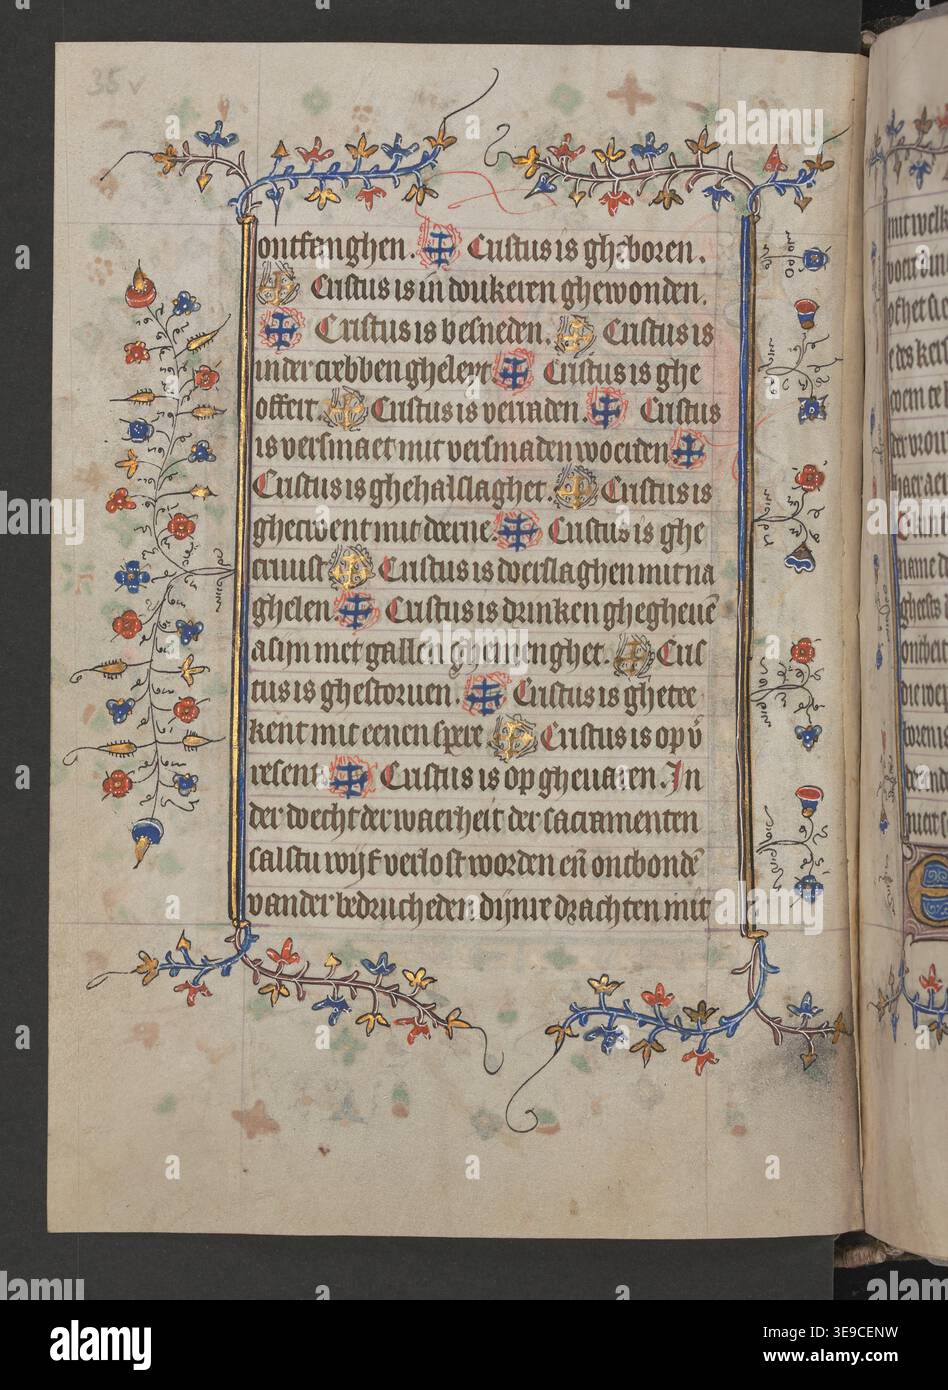 35v
ontfanghen. Cristus is gheboren.
Cristus is in doukeren ghewonden.
Cristus is besneden. Cristus is
in der crebben gheleyt Cristus is ghe
offert. Cristus is verraden. Cristus
is versmaet mit versmaden woerden
Cristus is ghehalslaghet. Cristus is
ghecroent mit doerne. Cristus is ghe
cruust Cristus is doerslaghen mit na
ghelen. Cristus is drinken ghegheuē
asijn met gallen ghemenghet. Cris
tus is ghestoruen. Cristus is ghetee
kent mit eenen spere Cristus is op v̄
resent Cristus is op gheuaren. In
der doecht der waerheit der sacramenten
salstu wijf verlost worden eñ ontbondē
van der bedructheden dijnre drachten mit
alamy
Image ID: 3E9CENW
www.alamy.com